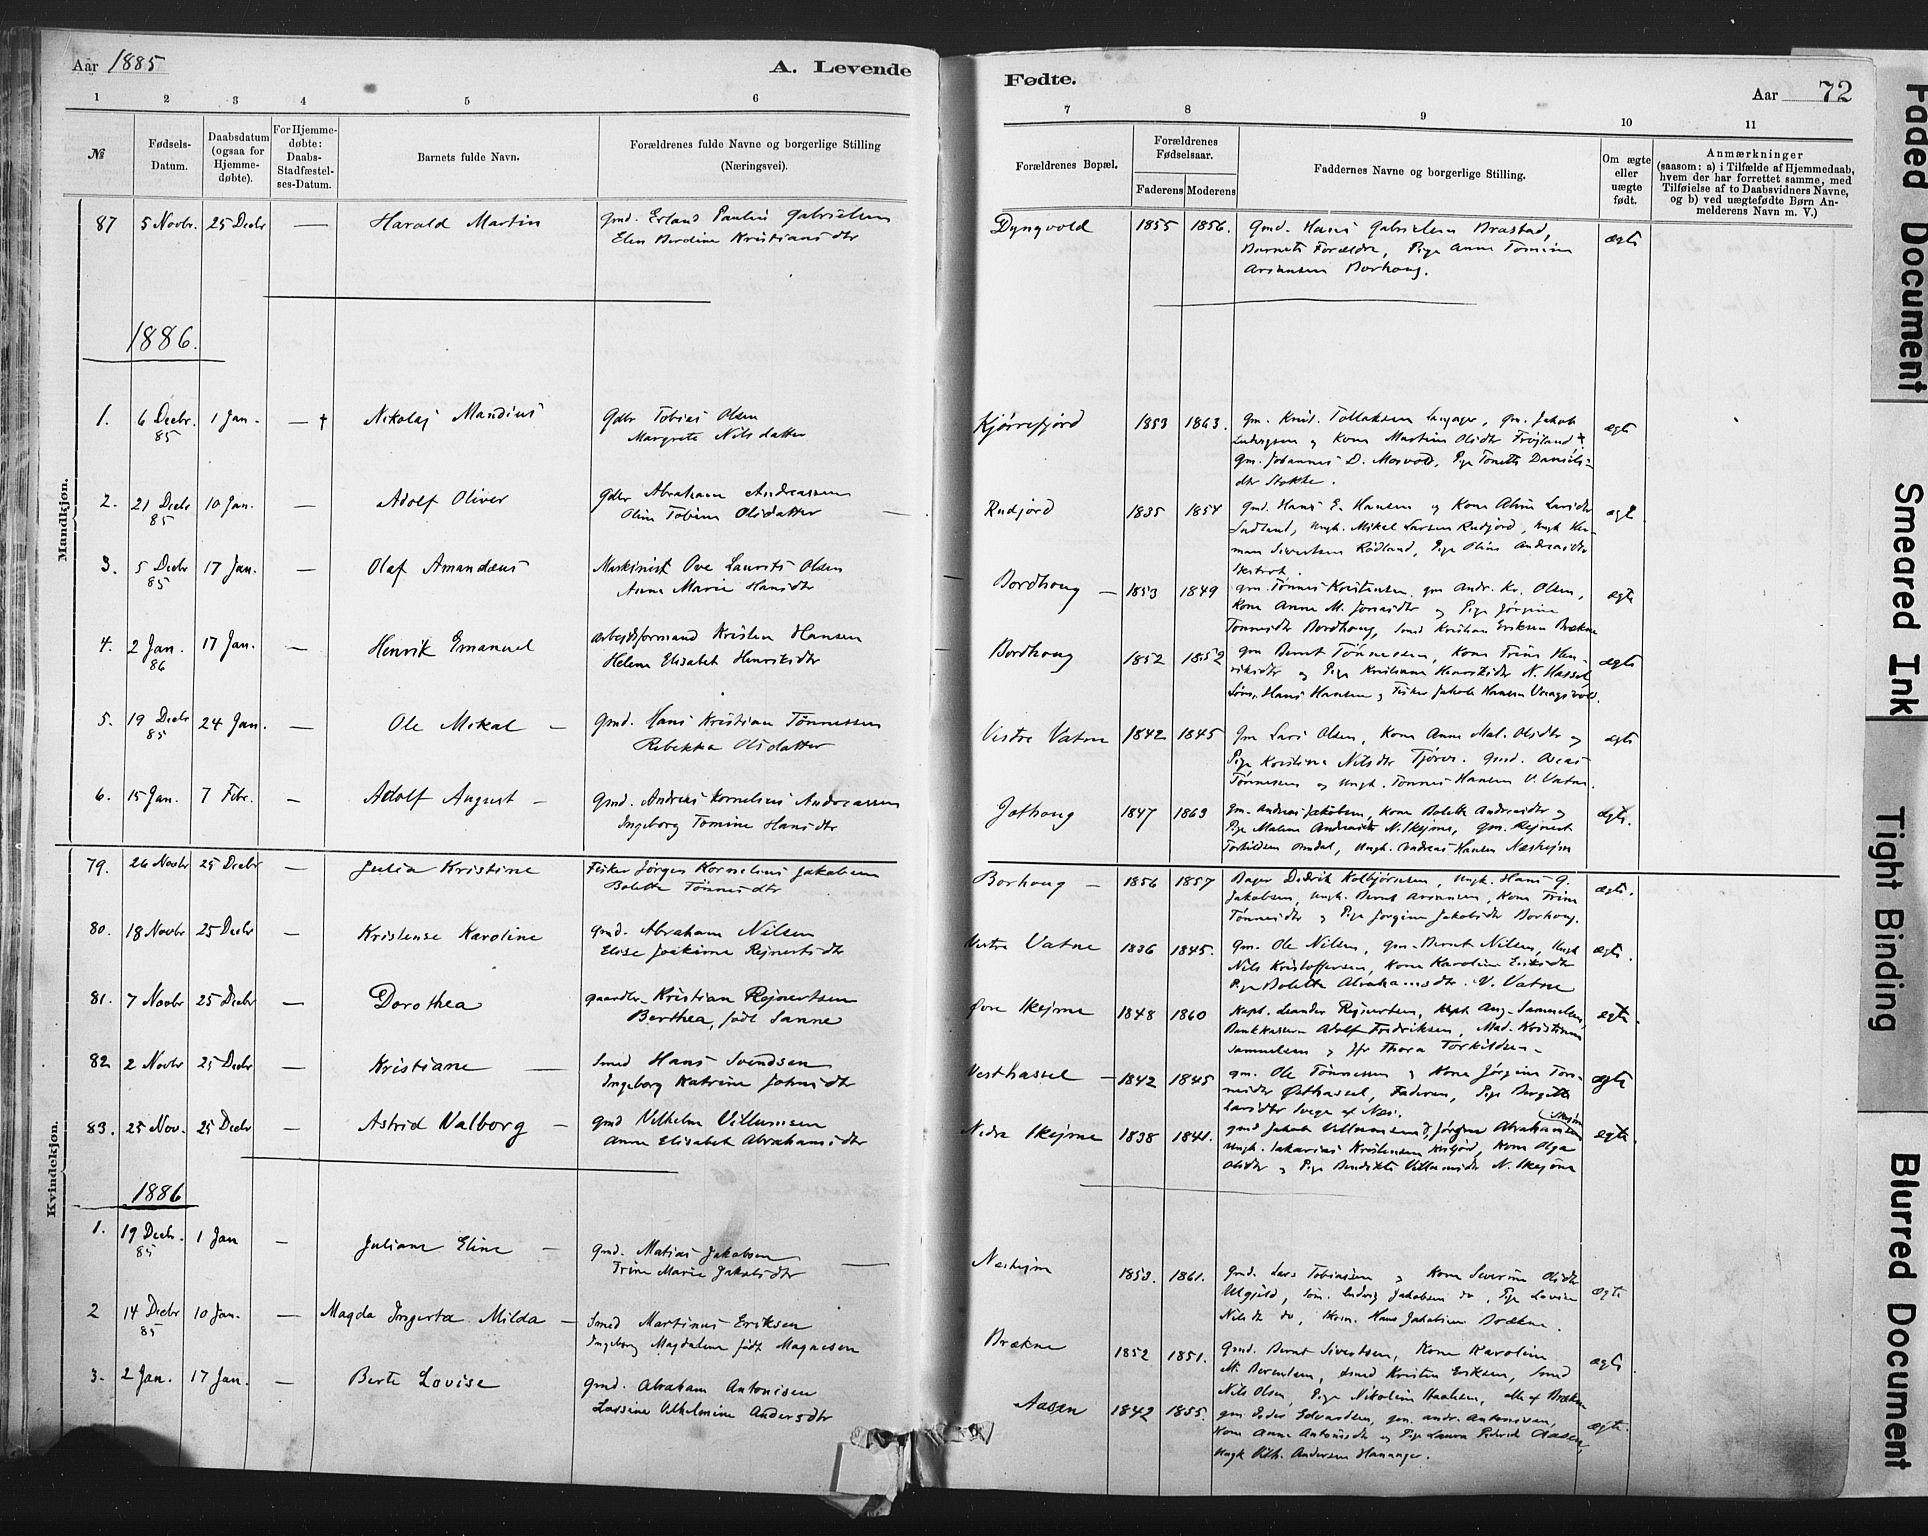 Aar 1885
A. Levende
Fødte.
Aar 72
1 2 3 4 5 6
7 8 9 10 11
№
Fødsels-
Datum.
Daabsdatum
(ogsaa for
Hjemme-
døbte).
For Hjemme-
døbte:
Daabs-
Stadfæstel-
ses-Datum.
Barnets fulde Navn.
Forældrenes fulde Navne og borgerlige Stilling
(Næringsvei).
Forældrenes Bopæl.
Forældrenes
Fødselsaar.
Faderens Moderens
Faddernes Navne og borgerlige Stilling.
Om ægte
eller
uægte
født.
Anmærkninger
(saasom: a) i Tilfælde af Hjemmedaab,
hvem der har forrettet samme, med
Tilføielse af to Daabsvidners Navne,
og b) ved uægtefødte Børn An-
melderens Navn m. V.)
Mandkjøn.
87 5 Novbr. 25 Decbr — Harald Martin
Gmd. Erland Paulin Gabrielsen
Elen Berdine Kristiansdtr
Dyngvold 1855 1856.
Gmd. Hans Gabrielsen Brastad,
Barnets Forældre, Pige Anne Tomine
Borhaug.
ægte
1886.
1. 6 Decbr. 85 1 Jan. — † Nikolaj Mandius
Gdbr Tobias Olsen
Margrete Nilsdatter
Kjørrefjord 1853 1863.
gm. Knud Tollaksen, gm. Jakob
Ludvigsen og Kone Martine Olsdtr Frøjland †
gm. Johannes D. Mosvold, Pige Tonette Daniels-
dtr Stokke.
ægte
2. 21 Decbr 85 10 Jan. — Adolf Oliver
Gdbr Abraham Andreassen
Oline Tobine Olsdatter —
Rudjord 1835 1854
gmd. Hans E. Hansen og Kone Aline Larsdtr
Sudland, Ungk. Mikel Larsen Rudjord, Ungk Her-
man Sivertsen Rødland, Pige Oline Andreasdtr
ægte
3. 5 Decbr 85 17 Jan. — Olaf Amandæus
Maskinist Ove Laurits Olsen
Anne Marie Hansdtr
Bordhaug — 1853 1849
gm. Tønnes Kristensen, gm Andr. Kr. Olsen,
Kone Anne M. Jonasdtr og Pige Jørgine
Tønnesdtr Bordhaug, Smed Kristian Eriksen Brækne
ægte
4. 2 Jan. 86 17 Jan. — Henrik Emanuel
Arbejdsformand Kristen Hansen
Helene Elisabet Henriksdtr
Bordhaug 1852 1852
gm Bernt Tønnessen, Kone Trine Hen-
riksdtr og Pige Kristiane Henriksdtr N. Hassel,
Søm. Hans Hansen og Fisker Jakob Hansen
ægte
5. 19 Decbr 85 24 Jan. — Ole Mikal —
Gmd. Hans Kristian Tønnessen
Rebekka Olsdatter
Vestre Vatne 1842 1845
Gm Lars Olsen, Kone Anne Mal. Olsdtr og
Pige Kristine Nilsdtr Tjørve. Gmd. Aeas
Tønnesen og Ungk. Tønnes Hansen V. Vatne.
ægte
6. 15 Jan. 7 Febr. — Adolf August —
Gmd. Andreas Kornelius Andreassen
Ingeborg Tomine Hansdtr
Jøthaug 1847 1863
Gm. Andreas Jakobsen, Kone Bolette Andreasdtr og
Pige Malene Andreasdtr N. Skejme, gm. Rejnert
Torkildsen Omdal, Ungk. Andreas Hansen Næshejm
ægte.
Kvindekjøn.
79. 26 Novbr 25 Decbr — Julia Kristine
Fisker Jørgen Kornelius Jakobsen
Bolette Tønnesdtr
Borhaug — 1856 1857
Bager Didrik Kolbjørnsen, Ungk. Hans G.
Jakobsen, Ungk. Bernt, Kone Trine
Tønnesdtr og Pige Jørgine Jakobsdtr Borhaug.
ægte.
80. 18 Novbr 25 Decbr — Kristense Karoline
Gmd. Abraham Nilsen
Elise Joakime Rejnertsdtr
Vestre Vatne 1836 1845.
Gm. Ole Nilsen, gm. Bernt Nilsen, Ungk
Nils Kristoffersen, Kone Karoline Eriksdtr
Pige Bolette Abrahamsdtr. V. Vatne
ægte.
81. 7 Novbr 25 Decbr — Dorothea
Gaardbr. Kristian Rejnertsen
Berthea, født Sanne
Øvre Skejme 1848 1860
Kapt. Leander Rejnertsen, Kapt. Aug. Samuelsen,
Bankkasser Adolf Fredriksen, Mad. Kristiane
Samuelsen og Thora Torkildsen —
ægte.
82 2 Novbr 25 Decbr — Kristiane —
Smed Hans Svendsen
Ingeborg Katrine Johnsdtr
Vesthassel — 1842 1845
gm. Ole Tønnessen og Kone Jørgine Tøn-
nesdtr Østhassel, Faderen, Pige Bergitte
Larsdtr Svege af Næs.
ægte
83. 25 Nov. 25 Decbr — Astrid Valborg —
Gmd Vilhelm Villumsen
Anne Elisabet Abrahamsdtr
Nedre Skejme 1838 1841.
gmd Jakob Villumsen og Jørgine Abrahamsen
Ungk. Sakarias Kristensen, Kone Olga
Olsdtr og Pige Bendikte Villumsdtr N. Skejme
ægte
1886
1. 19 Decbr. 85 1 Jan — Juliane Eline —
Gmd. Matias Jakobsen
Trine Marie Jakobsdtr —
Næshejm 1853. 1861.
Gmd. Lars Tobiassen og Kone Severine Olsdtr
Ulgjeld, Søm. Ludvig Jakobsen do, Pige Lovise
Nilsdtr do, Hans Jakobsen Brækne.
ægte
2 14 Decbr 85 10 Jan. — Magda Ingerta Milda —
Smed Martinus Eriksen
Ingeborg Magdalene født Magnesen
Brækne 1852 1851.
Gmd. Bernt Sivertsen, Kone Karoline
M. Berentsen, Smed Kristen Eriksen, Smed
Nils Olsen, Pige Nikoline, alle af Brækne
ægte
3. 2 Jan. 17 Jan. — Berte Lovise
Gmd. Abraham Antonisen
Larsine Vilhelmine Andersdtr
Aasen 1842 1855.
gm. Peder Edvardsen, gm. Andr. Antonisen,
Kone Anne Antonisdtr og Pige Laura Aasen,
Ungk Vilh. Andersen Hananger.
ægte.
Faded Document
Smeared Ink
Tight Binding
Blurred Document